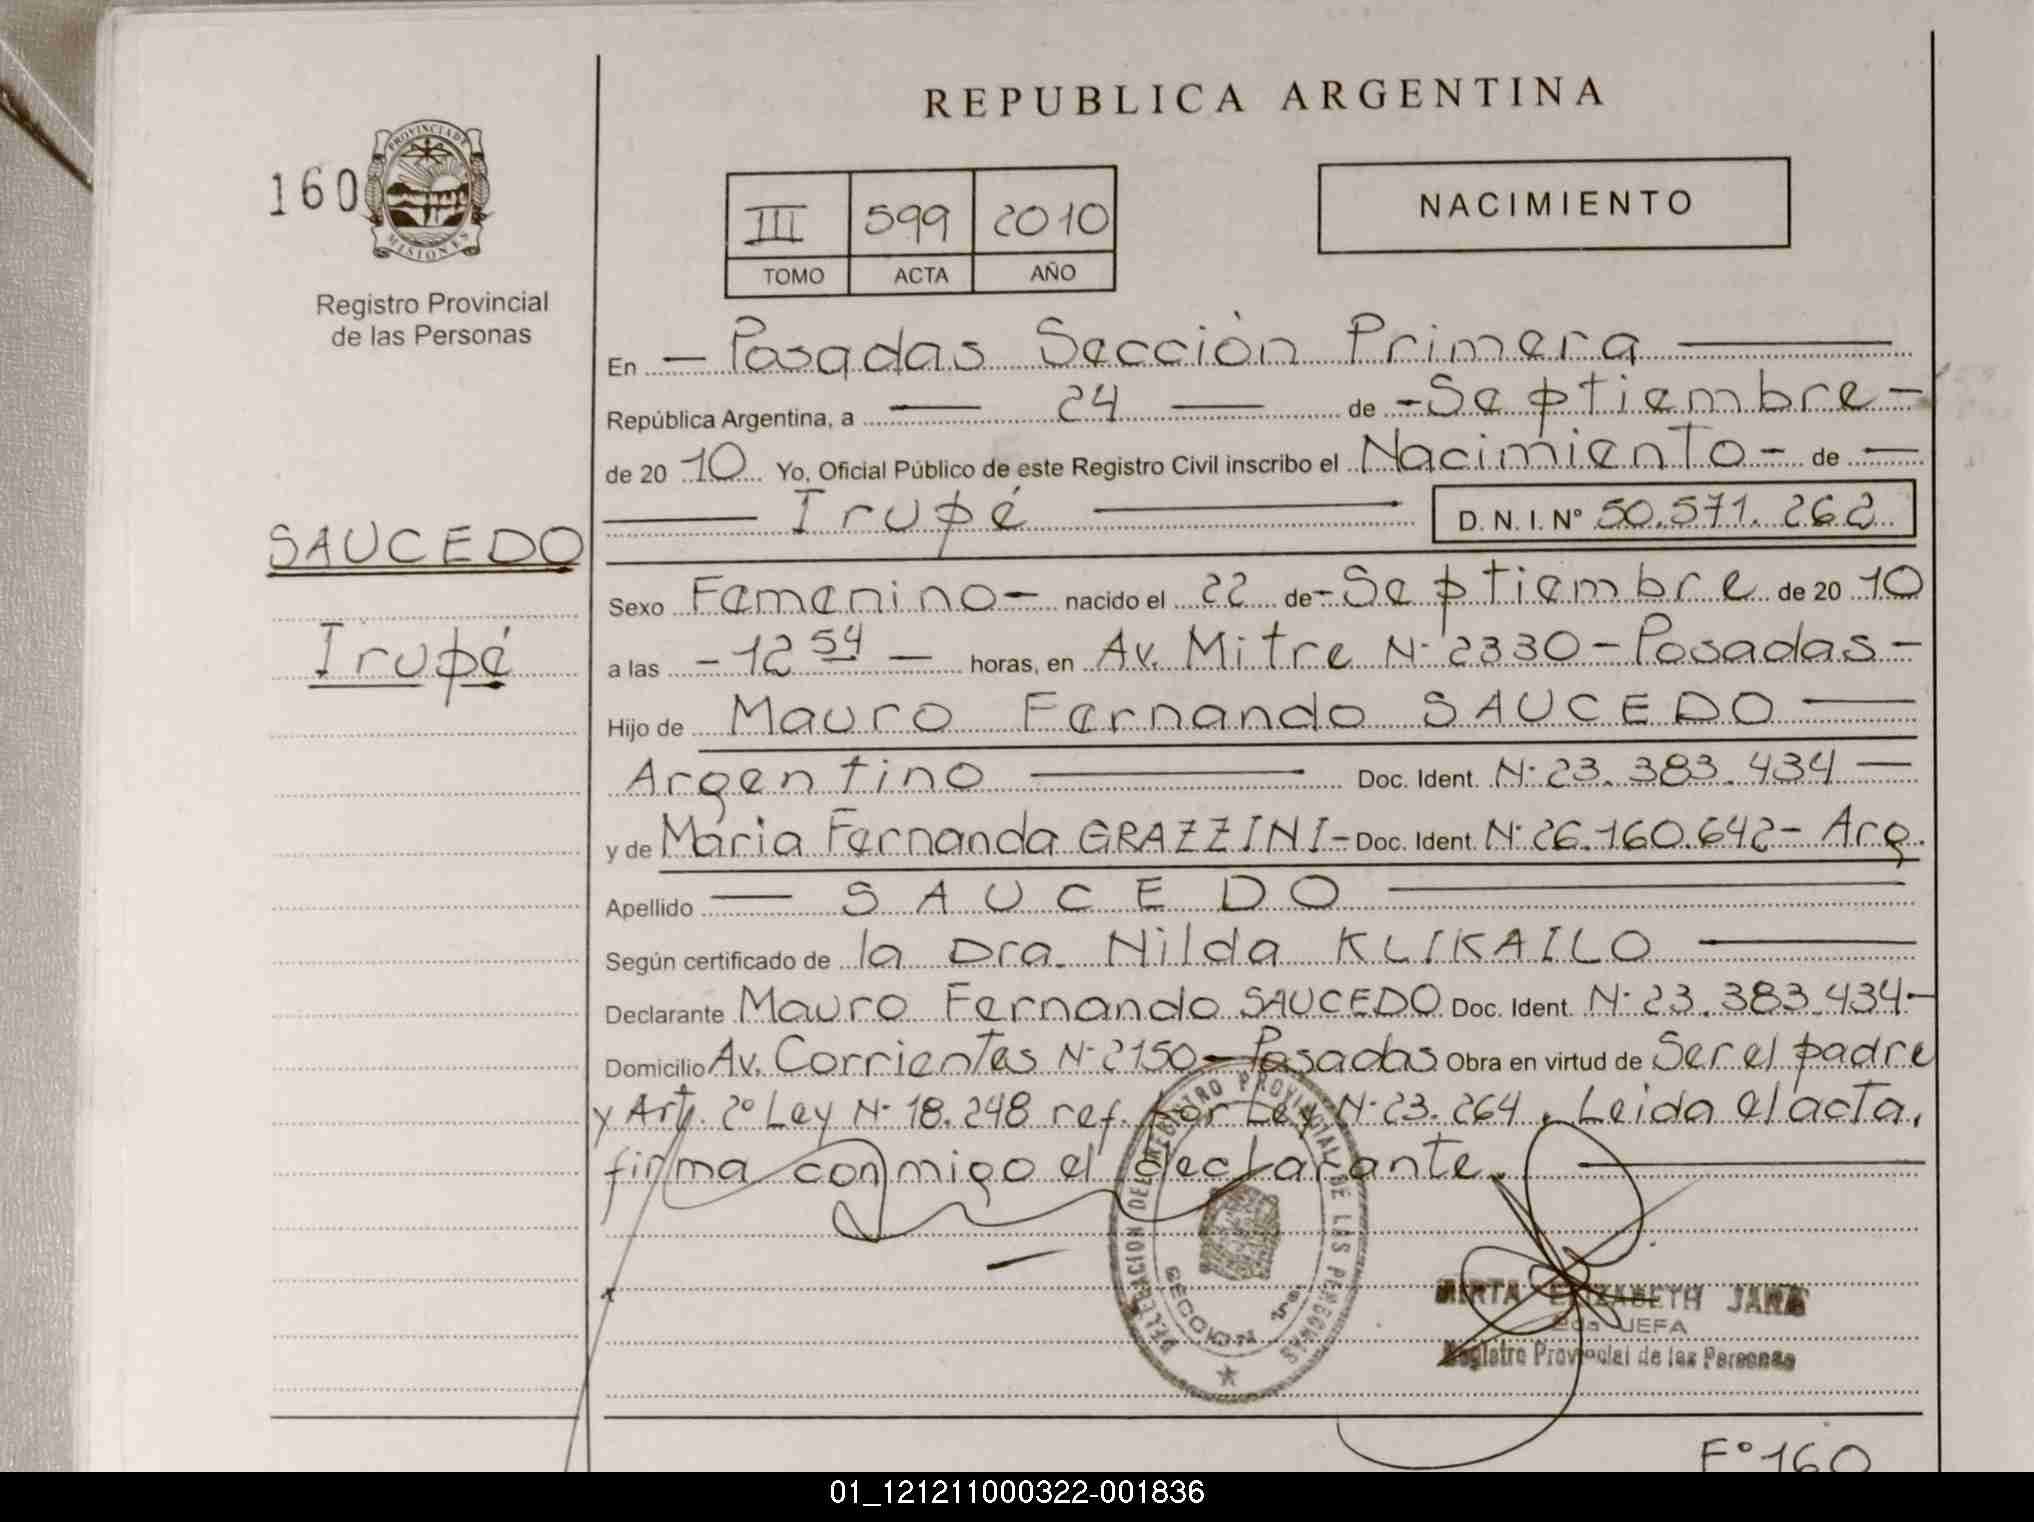 REPUBLICA ARGENTINA
160
PROVINCIA DE
MISIONES
Registro Provincial
de las Personas
III 599 2010
TOMO ACTA AÑO
NACIMIENTO
SAUCEDO
Irupé
En — Posadas Sección Primera —
República Argentina, a — 24 — de - Septiembre -
de 20 10 Yo, Oficial Público de este Registro Civil inscribo el Nacimiento - de —
— Irupé — D. N. I. Nº 50.571.262
Sexo Femenino - nacido el 22 de - Septiembre de 20 10
a las - 12 54 — horas, en Av. Mitre N· 2330 - Posadas -
Hijo de Mauro Fernando SAUCEDO —
Argentino — Doc. Ident. N· 23.383.434 —
y de María Fernanda GRAZZINI - Doc. Ident. N· 26.160.642 - Arg.
Apellido — SAUCEDO —
Según certificado de la Dra. Nilda KLIKAILO —
Declarante Mauro Fernando SAUCEDO Doc. Ident. N· 23.383.434 -
Domicilio Av. Corrientes N· 2150 - Posadas Obra en virtud de Ser el padre
y Art. 2º Ley N· 18.248 ref. por Ley N· 23.264. Leida el acta,
firma conmigo el declarante. —
DELEGACION DEL REGISTRO PROVINCIAL DE LAS PERSONAS
SECCION 1a
MIRTA ELIZABETH JARA
2da JEFA
Registro Provincial de las Personas
Fº 160
01_121211000322-001836